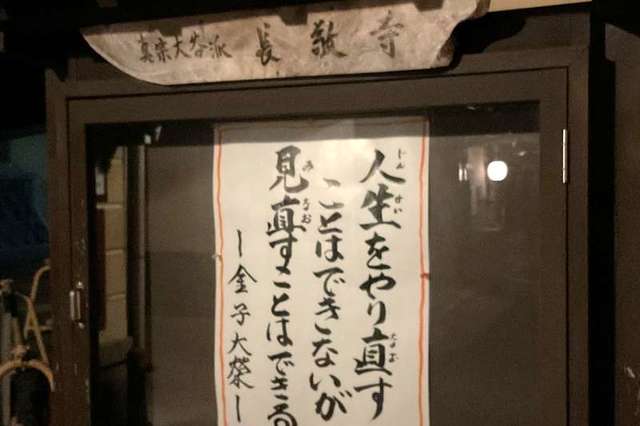 真宗大谷派 長敬寺
人生をやり直す
ことはできないが
見直すことはできる
ー金子大榮ー
じんせい
なお
みなお